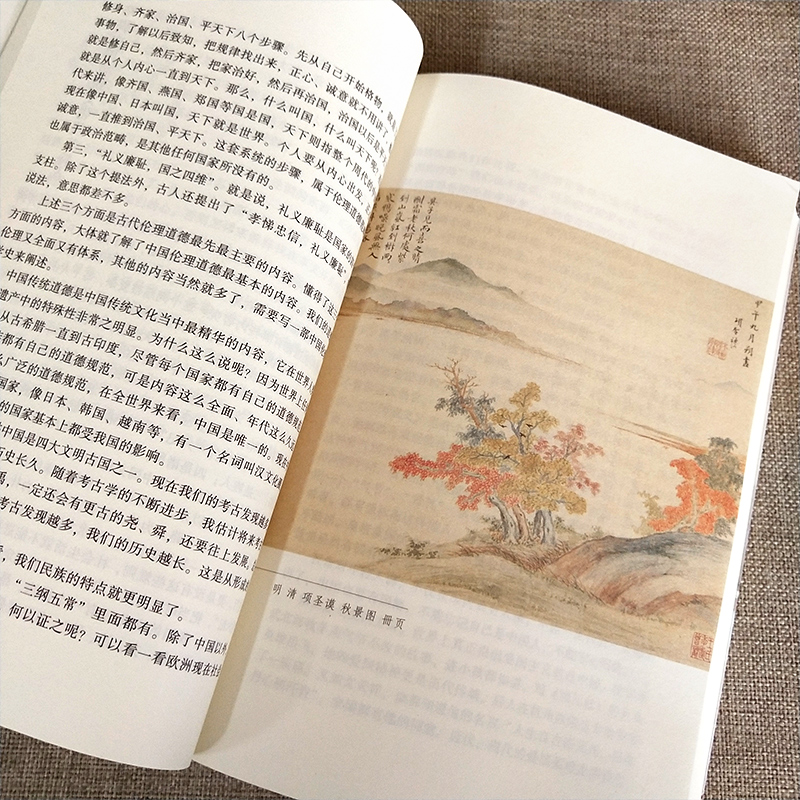 修身、齐家、治国、平天下八个步骤。先从自己开始格物，就
事物，了解以后致知，把规律找出来，正心、诚意就不用讲了
就是修自己，然后齐家，把家治好，然后再治国，治国以后是
就是从个人内心一直到天下。那么，什么叫国，什么叫天下呢？
代来讲，像齐国、燕国、郑国等国是国，天下则指整个周代的
现在像中国、日本叫国，天下就是世界。个人要从内心出发，
诚意，一直推到治国、平天下。这套系统的步骤，属于伦理道
也属于政治范畴，是其他任何国家所没有的。
第三，“礼义廉耻，国之四维”。就是说，礼义廉耻是国家的
支柱。除了这个提法外，古人还提出了“孝悌忠信，礼义廉耻”
说法，意思都差不多。
上述三个方面是古代伦理道德最先最主要的内容。懂得了这三
方面的内容，大体就了解了中国伦理道德最基本的内容。我们的
伦理又全面又有体系，其他的内容当然就多了，需要写一部中国
史来阐述。
中国传统道德是中国传统文化当中最精华的内容，它在世界
遗产中的特殊性非常之明显。为什么这么说呢？因为世界上
从古希腊一直到古印度，尽管每个国家都有自己的道德
都有自己的道德规范，可是内容这么全面、年代这么
广泛的道德规范，在全世界来看，中国是唯一的。现在
国家，像日本、韩国、越南等，有一个名词叫汉文化
的国家基本上都受我国的影响。
中国是四大文明古国之一。现在我们的考古发现越
历史长久。随着考古学的不断进步，我估计将来考
禹，一定还会有更古的尧、舜，还要往上发展。
古发现越多，我们的历史越长。这是从形
，我们民族的特点就更明显了。
“三纲五常”里面都有。除了中国以外
何以证之呢？可以看一看欧洲现在社
甲午九月朔書
明 清 项圣谟 秋景图 册页